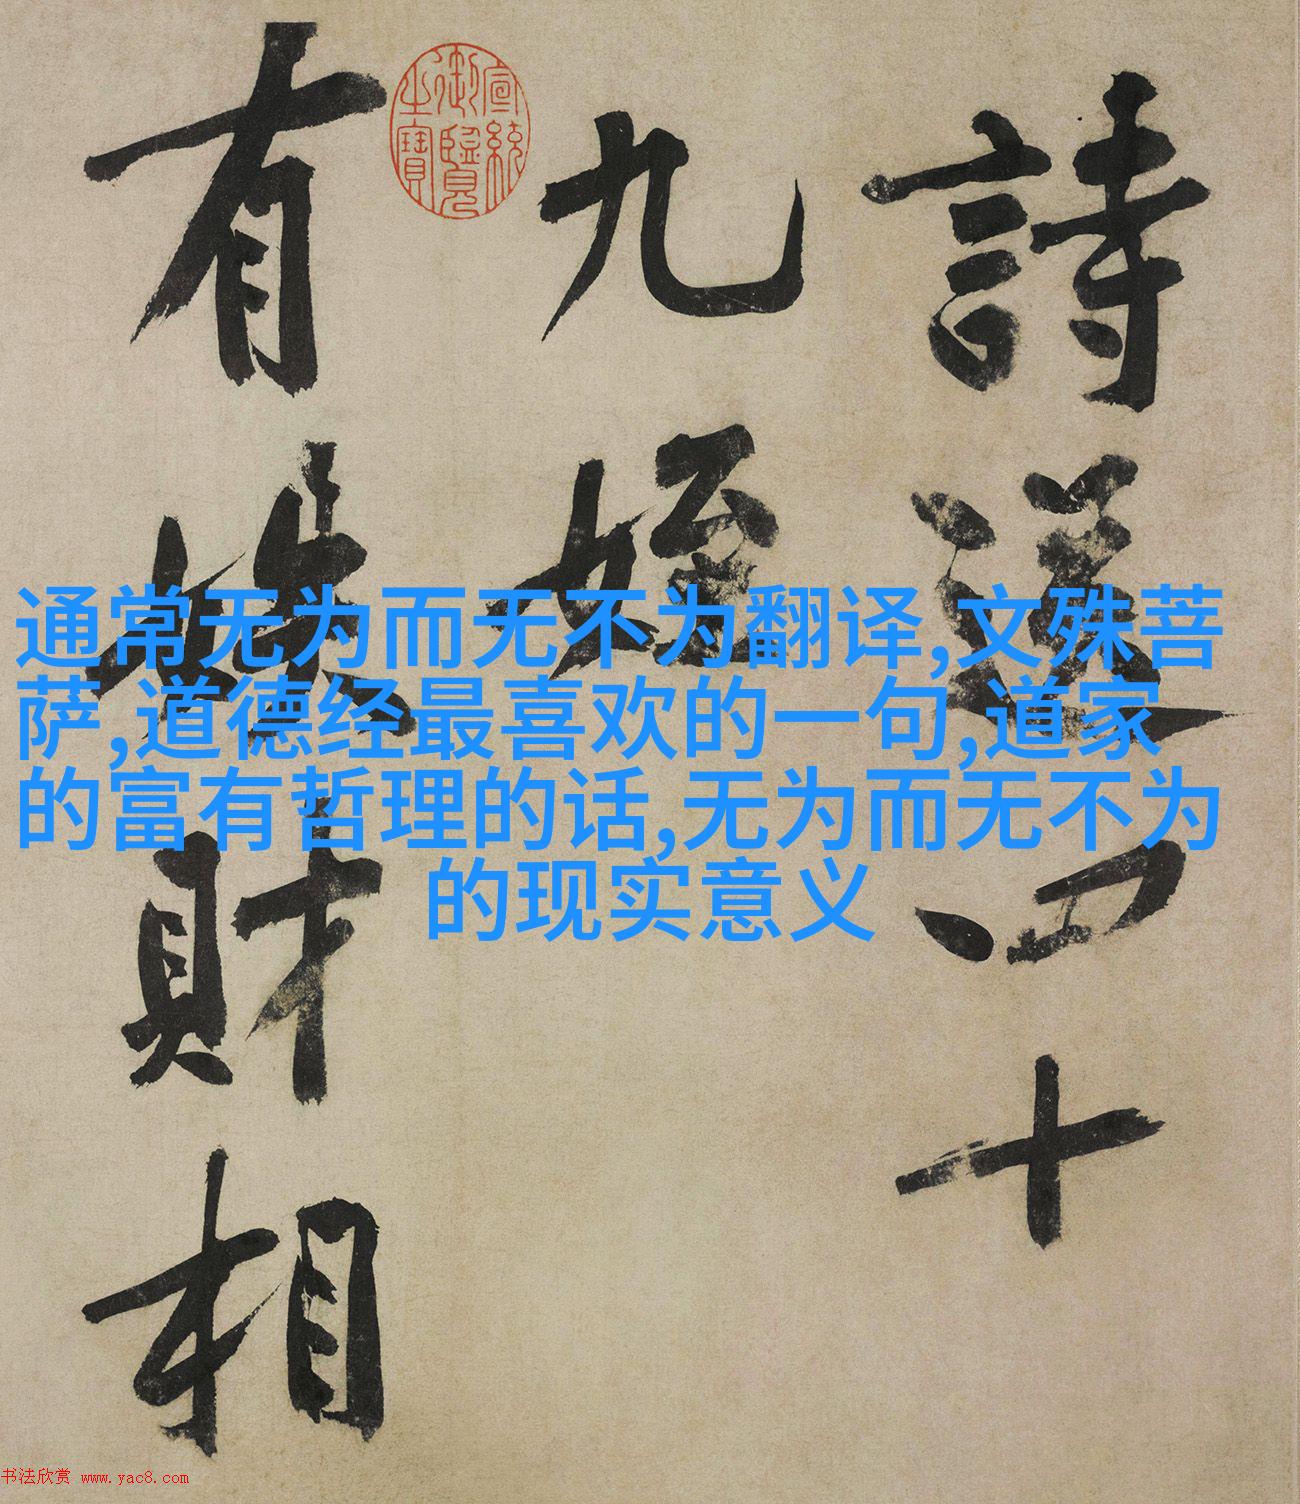 詩送四十
九姪
有財相
宣統御覽之寶
通常无为而无不为翻译,文殊菩
萨,道德经最喜欢的一句,道家
的富有哲理的话,无为而无不为
的现实意义
书法欣赏 www.yac8.com